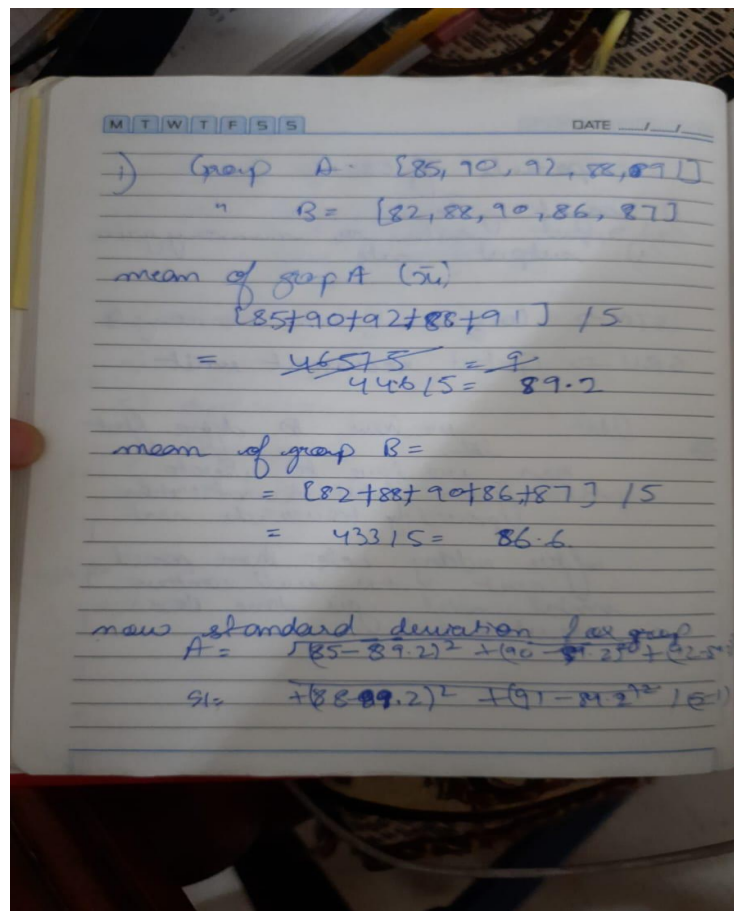 M T W T F S S DATE __/__/__
1) Group A - [85, 90, 92, 88, 91]
" B = [82, 88, 90, 86, 87]
mean of grop A (x̄1)
[85+90+92+88+91] /5
= 465/5 = 9
446/5 = 89.2
mean of group B =
= [82+88+90+86+87] /5
= 433/5 = 86.6
now standard deviation for group
A = √(85-89.2)² + (90-89.2)² + (92-
S1= +(88-89.2)² + (91-89.2)² / (5-1)